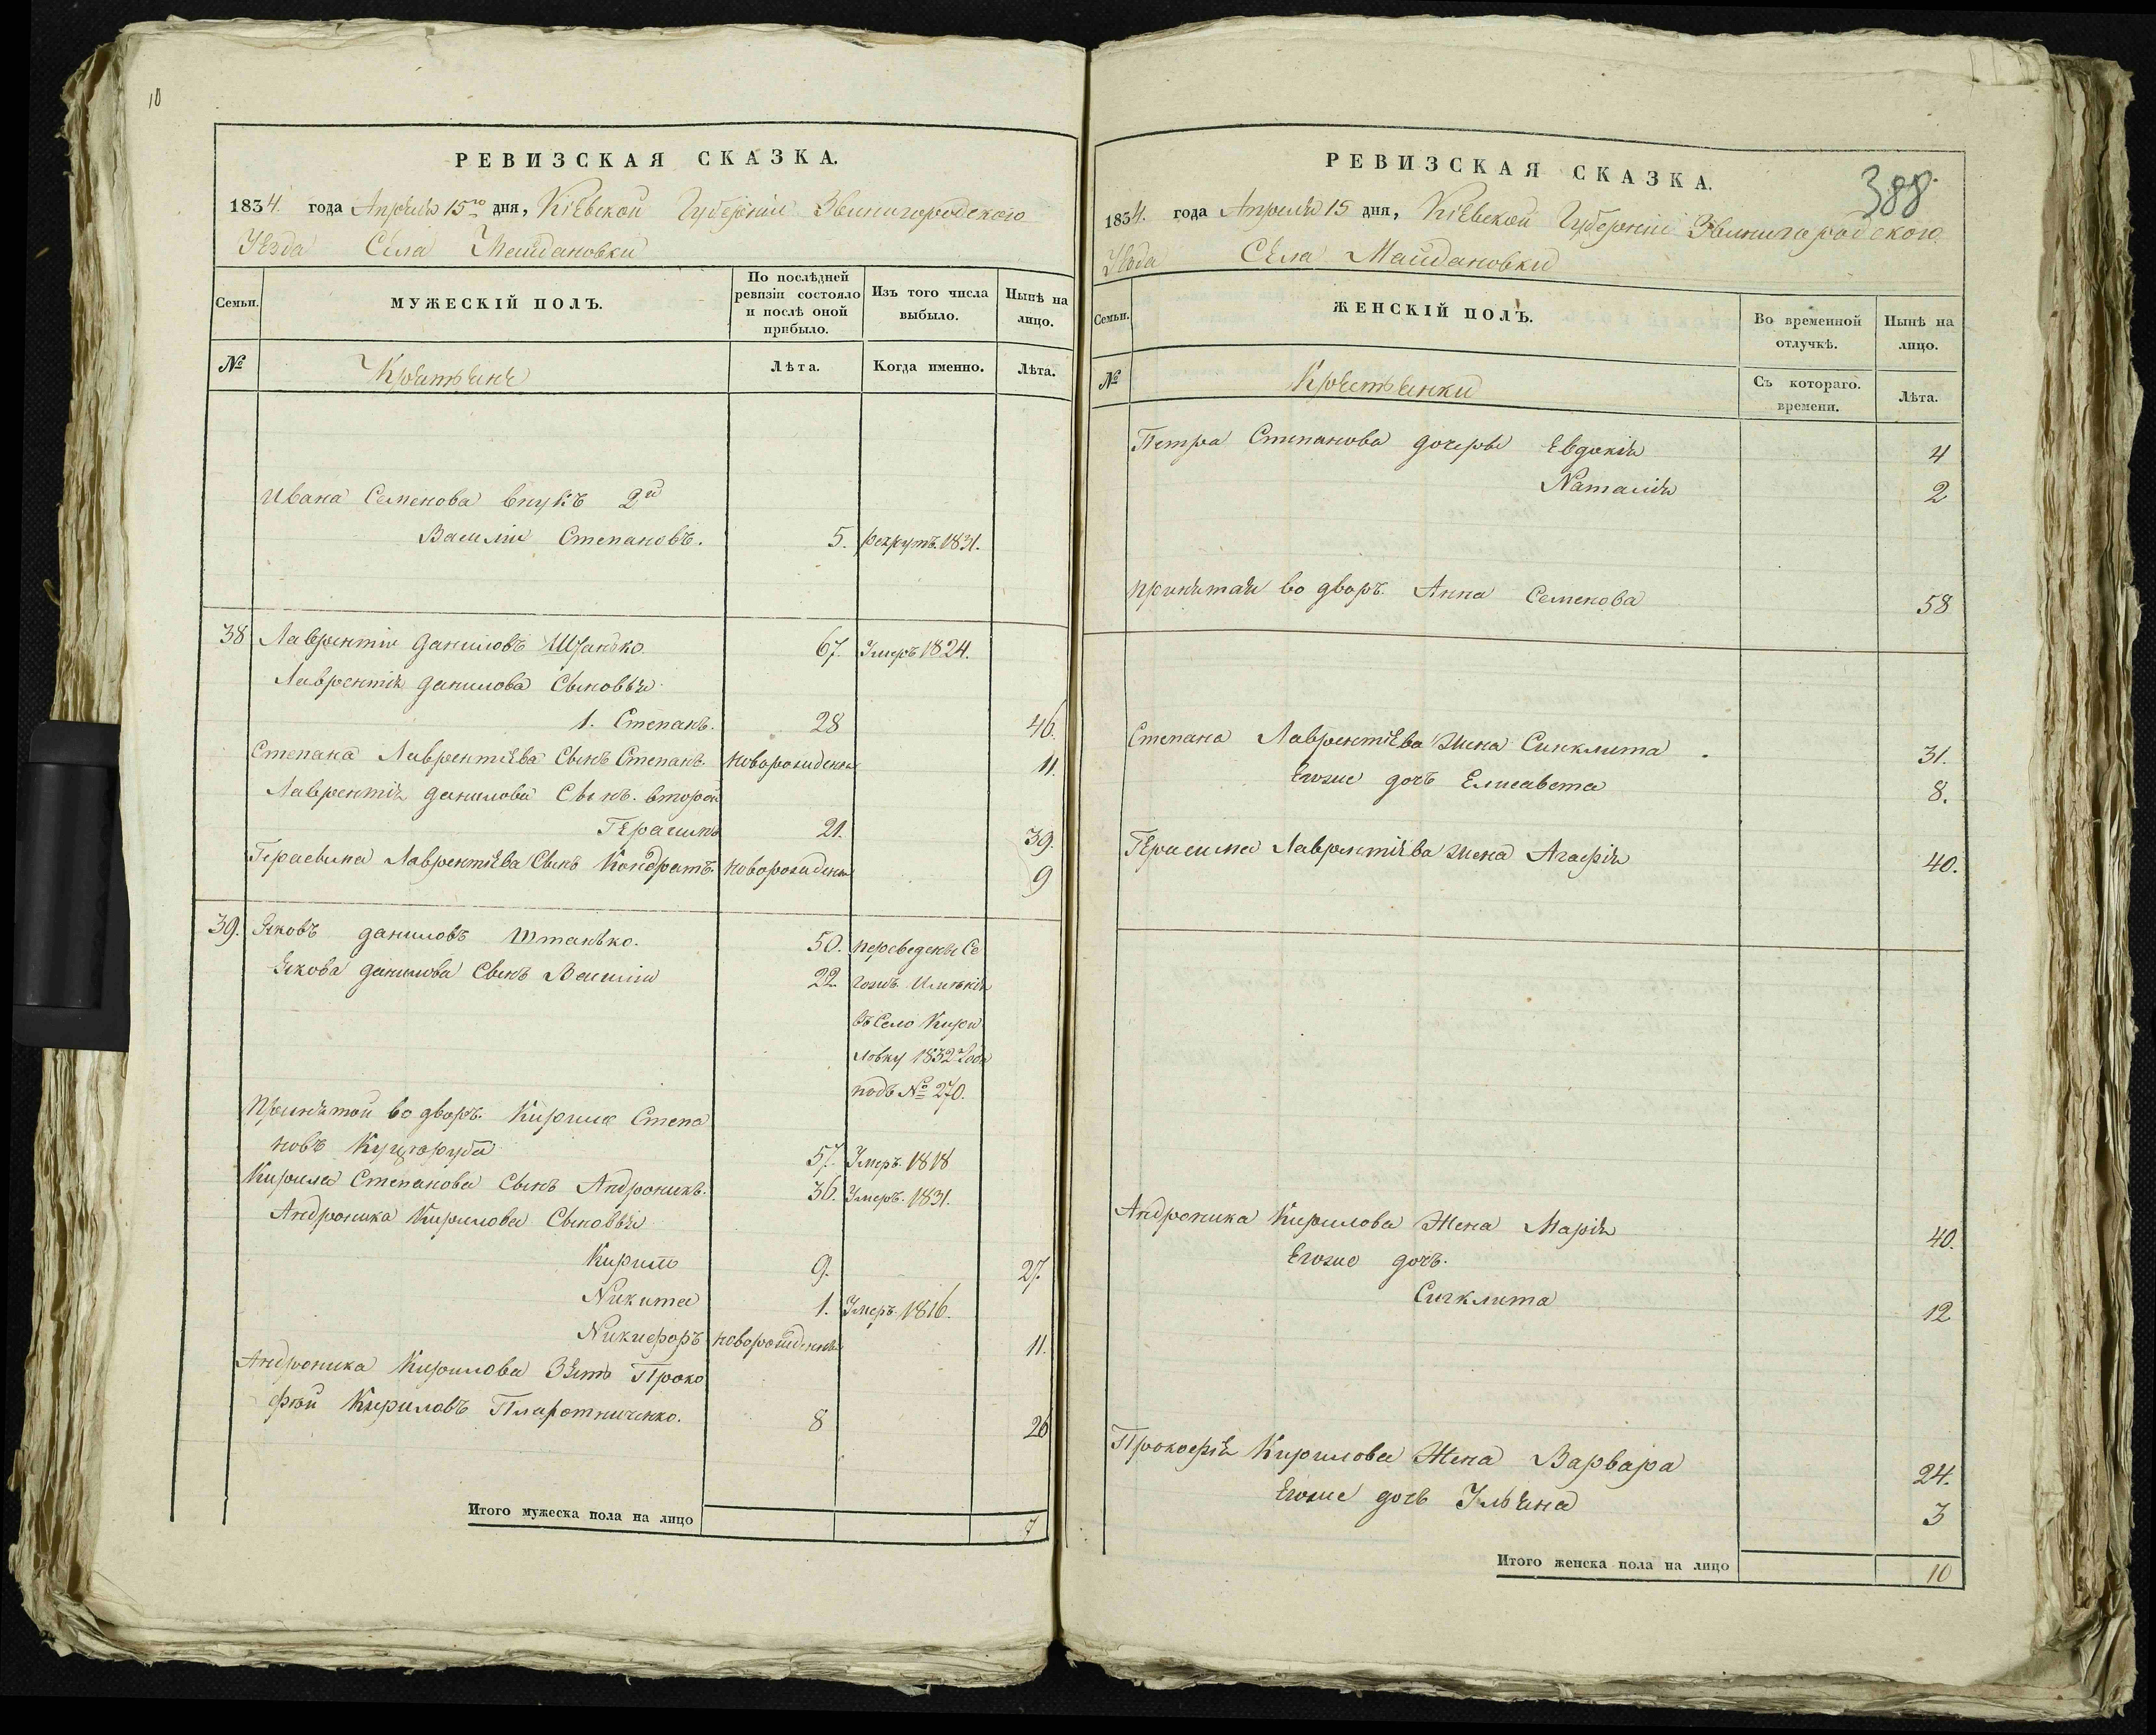 10
РЕВИЗСКАЯ СКАЗКА.
1834. года Апреля 15го дня, Кіевской Губерніи Звенигородского
Уезда Села Майдановки
Семьи.
МУЖЕСКІЙ ПОЛЪ.
По послѣдней ревизіи состояло и послѣ оной прибыло.
Изъ того числа выбыло.
Нынѣ на лицо.
№
Крестьяне
Лѣта.
Когда именно.
Лѣта.
Ивана Семенова внукъ 2й
Василій Степановъ. 5. рекрутъ. 1831.
38 Лаврентій Даниловъ 67. Умеръ 1824.
Лаврентія Данилова Сыновья
1. Степанъ. 28 46.
Степана Лаврентіева Сынъ Степанъ. новорожденъ 11.
Лаврентія Данилова Сынъ. второй
Герасимъ 21. 39.
Герасима Лаврентіева Сынъ Кондратъ. новорожденъ 9
39. Яковъ Даниловъ Штанько. 50. переведены Се
Якова Данилова Сынъ Василій 22. гожъ Имѣнія
въ Село Кири
ловку 1832 Года
подъ № 270.
Принятой во дворъ. Кирила Степа
новъ 57. Умеръ. 1818
Кирила Степанова Сынъ Андроникъ. 36. Умеръ. 1831.
Андроника Кирилова Сыновья
Кирилъ 9. 27.
Никита 1. Умеръ 1816.
Никифоръ новорожденъ 11.
Андроника Кирилова Зять Проко
фій Кириловъ Пларотниченко. 8 26
Итого мужеска пола на лицо 7
388
РЕВИЗСКАЯ СКАЗКА.
1834. года Апреля 15 дня, Кіевской Губерніи Звенигородского
Уезда Села Майдановки
Семьи.
ЖЕНСКІЙ ПОЛЪ.
Во временной отлучкѣ.
Нынѣ на лицо.
№
Крестьянки
Съ котораго. времени.
Лѣта.
Петра Степанова дочеры Евдокія 4
Наталія 2
принятая во дворъ. Анна Семенова 58
Степана Лаврентіева жена Синклита 31.
Егоже дочь Елисавета 8.
Герасима Лаврентіева жена Агафія 40.
Андроника Кирилова Жена Марія 40.
Егоже дочь.
Сигклита 12
Прокофія Кирилова Жена Варвара 24.
Егоже дочь Ульяна 3
Итого женска пола на лицо 10